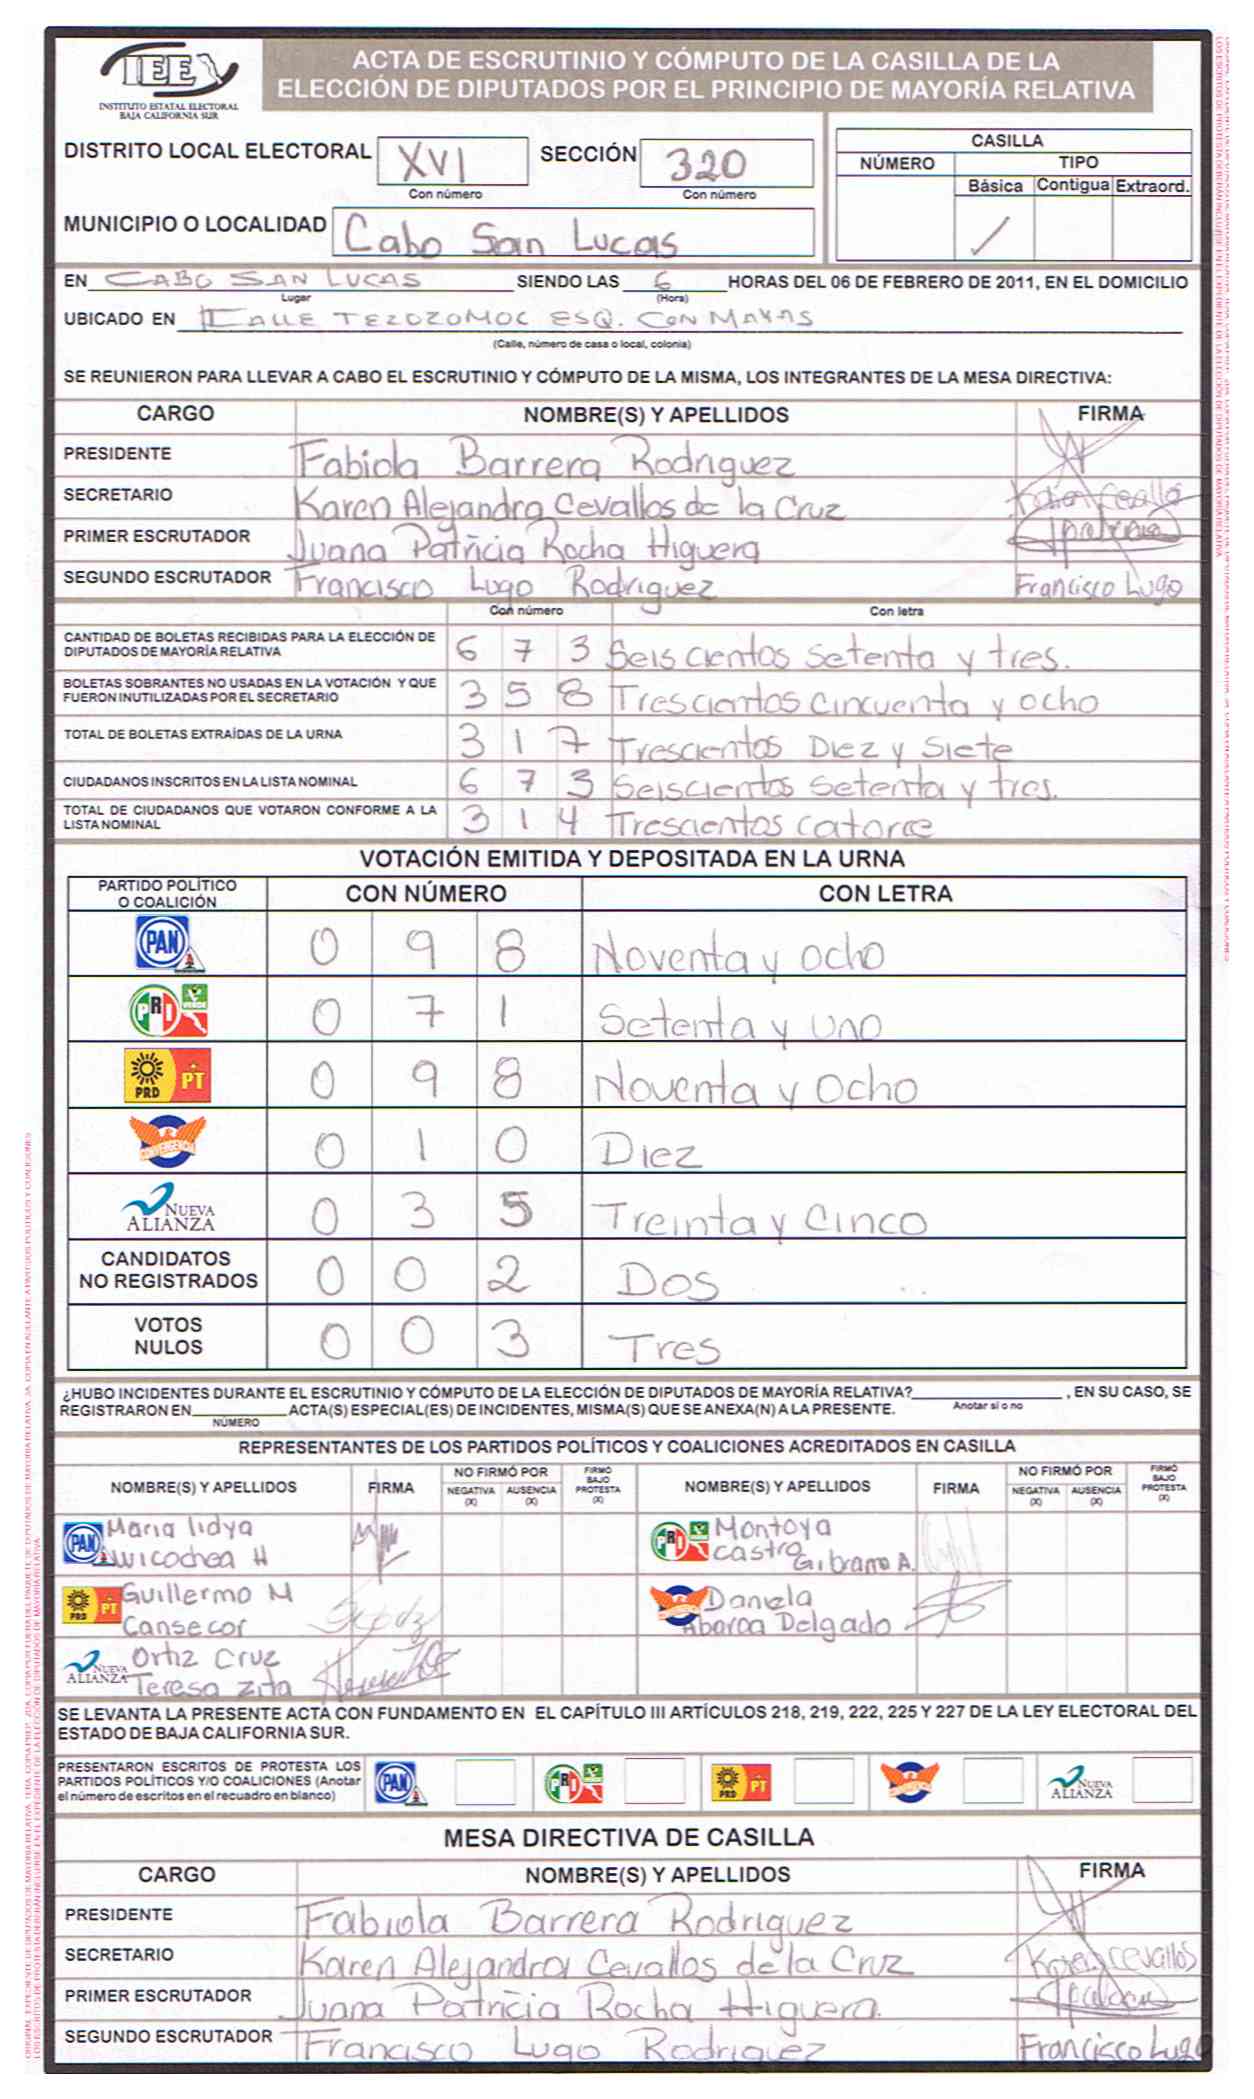 IEE
INSTITUTO ESTATAL ELECTORAL
BAJA CALIFORNIA SUR
ACTA DE ESCRUTINIO Y CÓMPUTO DE LA CASILLA DE LA
ELECCIÓN DE DIPUTADOS POR EL PRINCIPIO DE MAYORÍA RELATIVA
DISTRITO LOCAL ELECTORAL XVI SECCIÓN 320
Con número Con número
MUNICIPIO O LOCALIDAD Cabo San Lucas
CASILLA
NÚMERO TIPO
Básica Contigua Extraord.
EN CABO SAN LUCAS SIENDO LAS 6 HORAS DEL 06 DE FEBRERO DE 2011, EN EL DOMICILIO
Lugar (Hora)
UBICADO EN CALLE TEZOZOMOC ESQ. CON MAYAS
(Calle, número de casa o local, colonia)
SE REUNIERON PARA LLEVAR A CABO EL ESCRUTINIO Y CÓMPUTO DE LA MISMA, LOS INTEGRANTES DE LA MESA DIRECTIVA:
CARGO NOMBRE(S) Y APELLIDOS FIRMA
PRESIDENTE Fabiola Barrera Rodriguez
SECRETARIO Karen Alejandra Cevallos de la Cruz
PRIMER ESCRUTADOR Juana Patricia Rocha Higuera
SEGUNDO ESCRUTADOR Francisco Lugo Rodriguez Francisco Lugo
Con número Con letra
CANTIDAD DE BOLETAS RECIBIDAS PARA LA ELECCIÓN DE
DIPUTADOS DE MAYORÍA RELATIVA 6 7 3 Seis cientos Setenta y tres.
BOLETAS SOBRANTES NO USADAS EN LA VOTACIÓN Y QUE
FUERON INUTILIZADAS POR EL SECRETARIO 3 5 8 Trescientos cincuenta y ocho
TOTAL DE BOLETAS EXTRAÍDAS DE LA URNA 3 1 7 Trescientos Diez y Siete
CIUDADANOS INSCRITOS EN LA LISTA NOMINAL 6 7 3 Seiscientos Setenta y tres.
TOTAL DE CIUDADANOS QUE VOTARON CONFORME A LA
LISTA NOMINAL 3 1 4 Trescientos catorce
VOTACIÓN EMITIDA Y DEPOSITADA EN LA URNA
PARTIDO POLÍTICO
O COALICIÓN CON NÚMERO CON LETRA
PAN 0 9 8 Noventa y ocho
PRI VERDE 0 7 1 Setenta y uno
PRD PT 0 9 8 Noventa y Ocho
CONVERGENCIA 0 1 0 Diez
NUEVA ALIANZA 0 3 5 Treinta y Cinco
CANDIDATOS
NO REGISTRADOS 0 0 2 Dos
VOTOS
NULOS 0 0 3 Tres
¿HUBO INCIDENTES DURANTE EL ESCRUTINIO Y CÓMPUTO DE LA ELECCIÓN DE DIPUTADOS DE MAYORÍA RELATIVA? , EN SU CASO, SE
Anotar si o no
REGISTRARON EN ACTA(S) ESPECIAL(ES) DE INCIDENTES, MISMA(S) QUE SE ANEXA(N) A LA PRESENTE.
NÚMERO
REPRESENTANTES DE LOS PARTIDOS POLÍTICOS Y COALICIONES ACREDITADOS EN CASILLA
NOMBRE(S) Y APELLIDOS FIRMA NO FIRMÓ POR NEGATIVA (X) AUSENCIA (X) FIRMÓ BAJO PROTESTA (X) NOMBRE(S) Y APELLIDOS FIRMA NO FIRMÓ POR NEGATIVA (X) AUSENCIA (X) FIRMÓ BAJO PROTESTA (X)
PAN Maria lidya
Wicochea H
PRI VERDE Montoya
Castro Gibrann A.
PRD PT Guillermo M
Cansecor
CONVERGENCIA Daniela
Abaroa Delgado
NUEVA ALIANZA Ortiz Cruz
Teresa Zita
SE LEVANTA LA PRESENTE ACTA CON FUNDAMENTO EN EL CAPÍTULO III ARTÍCULOS 218, 219, 222, 225 Y 227 DE LA LEY ELECTORAL DEL
ESTADO DE BAJA CALIFORNIA SUR.
PRESENTARON ESCRITOS DE PROTESTA LOS
PARTIDOS POLÍTICOS Y/O COALICIONES (Anotar
el número de escritos en el recuadro en blanco)
PAN PRI VERDE PRD PT CONVERGENCIA NUEVA ALIANZA
MESA DIRECTIVA DE CASILLA
CARGO NOMBRE(S) Y APELLIDOS FIRMA
PRESIDENTE Fabiola Barrera Rodriguez
SECRETARIO Karen Alejandra Cevallos de la Cruz Karen Cevallos
PRIMER ESCRUTADOR Juana Patricia Rocha Higuera.
SEGUNDO ESCRUTADOR Francisco Lugo Rodriguez Francisco Lugo